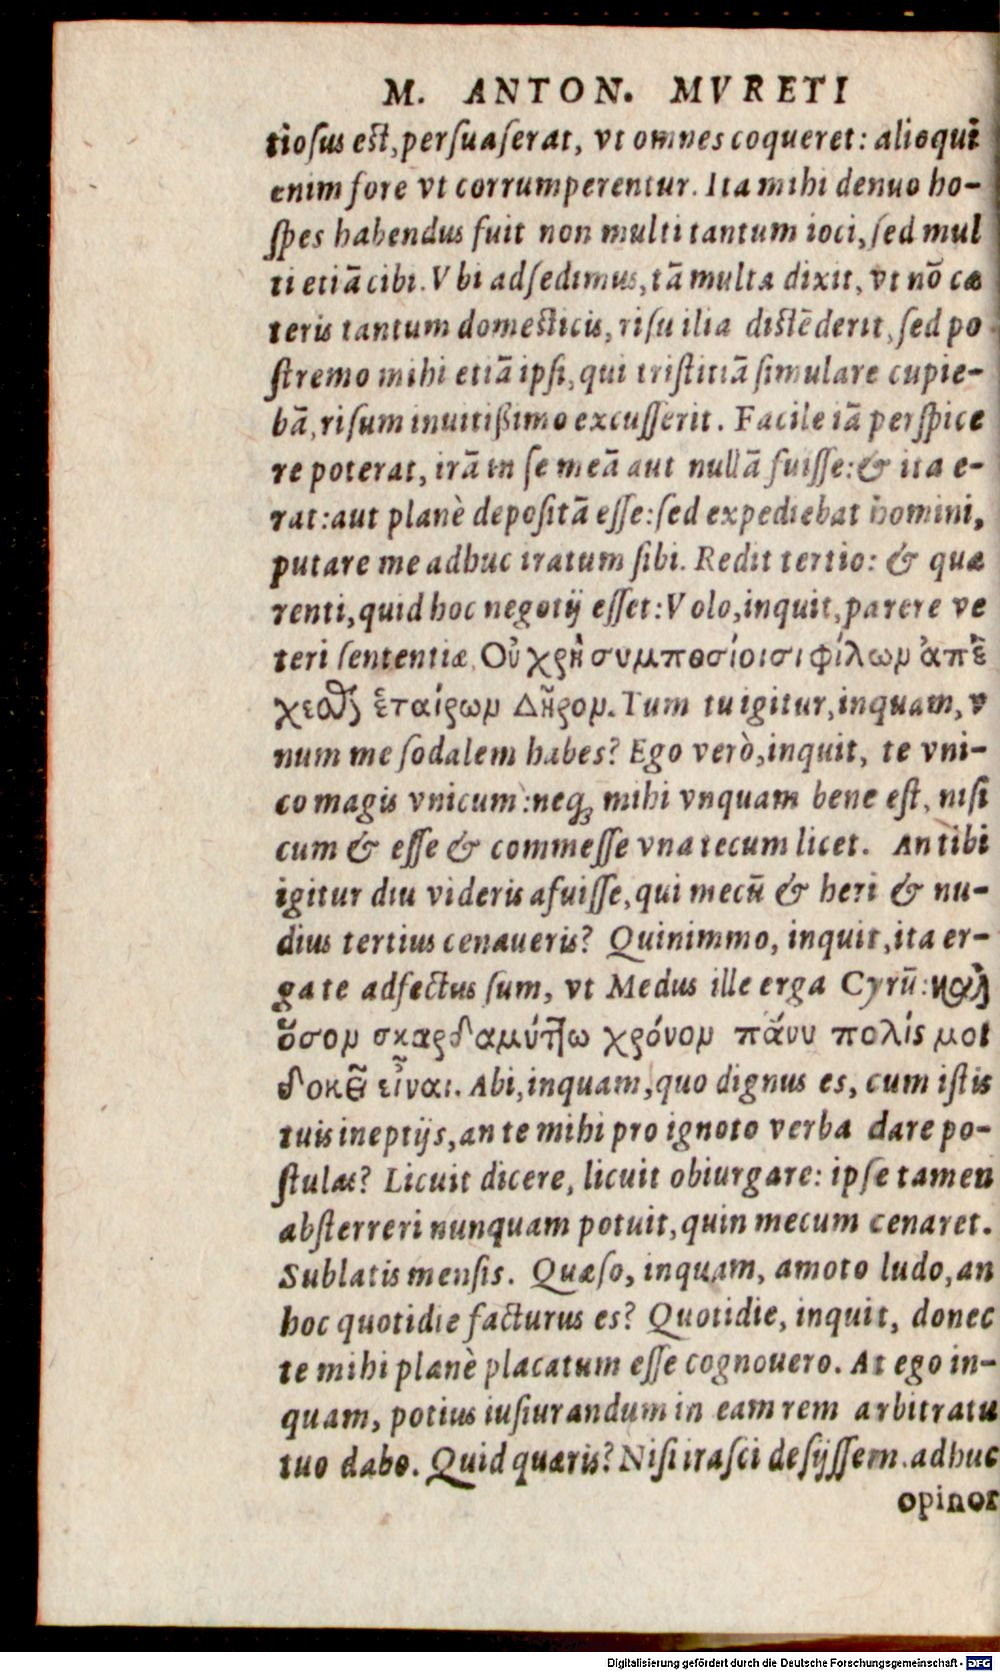 M. ANTON. MVRETI
tiosus est, persuaserat, vt omnes coqueret: alioqui
enim fore vt corrumperentur. Ita mihi denuo ho-
spes habendus fuit non multi tantum ioci, sed mul
ti etiā cibi. Vbi adsedimus, tā multa dixit, vt nō cæ
teris tantum domesticis, risu ilia distēderit, sed po
stremo mihi etiā ipsi, qui tristitiā simulare cupie-
bā, risum inuitißimo excusserit. Facile iā perspice
re poterat, irā in se meā aut nullā fuisse: & ita e-
rat: aut planè depositā esse: sed expediebat homini,
putare me adhuc iratum sibi. Redit tertio: & quæ
renti, quid hoc negotij esset: Volo, inquit, parere ve
teri sententiæ, Οὐ χρὴ συμποσίοισι φίλων ἀπέ
χεσθαι ἑταίρων Δῆρον. Tum tu igitur, inquam, v
num me sodalem habes? Ego verò, inquit, te vni-
co magis vnicum: neq; mihi vnquam bene est, nisi
cum & esse & commesse vna tecum licet. An tibi
igitur diu videris afuisse, qui mecū & heri & nu-
dius tertius cenaueris? Quinimmo, inquit, ita er-
ga te adfectus sum, vt Medus ille erga Cyrū: καὶ
ὅσον σκαρδαμύττω χρόνον πάνυ πολύς μοι
δοκεῖ εἶναι. Abi, inquam, quo dignus es, cum istis
tuis ineptijs, an te mihi pro ignoto verba dare po-
stulas? Licuit dicere, licuit obiurgare: ipse tamen
absterreri nunquam potuit, quin mecum cenaret.
Sublatis mensis. Quæso, inquam, amoto ludo, an
hoc quotidie facturus es? Quotidie, inquit, donec
te mihi planè placatum esse cognouero. At ego in-
quam, potius iusiurandum in eam rem arbitratu
tuo dabo. Quid quæris? Nisi irasci desijssem. adhuc
opinor
Digitalisierung gefördert durch die Deutsche Forschungsgemeinschaft - DFG